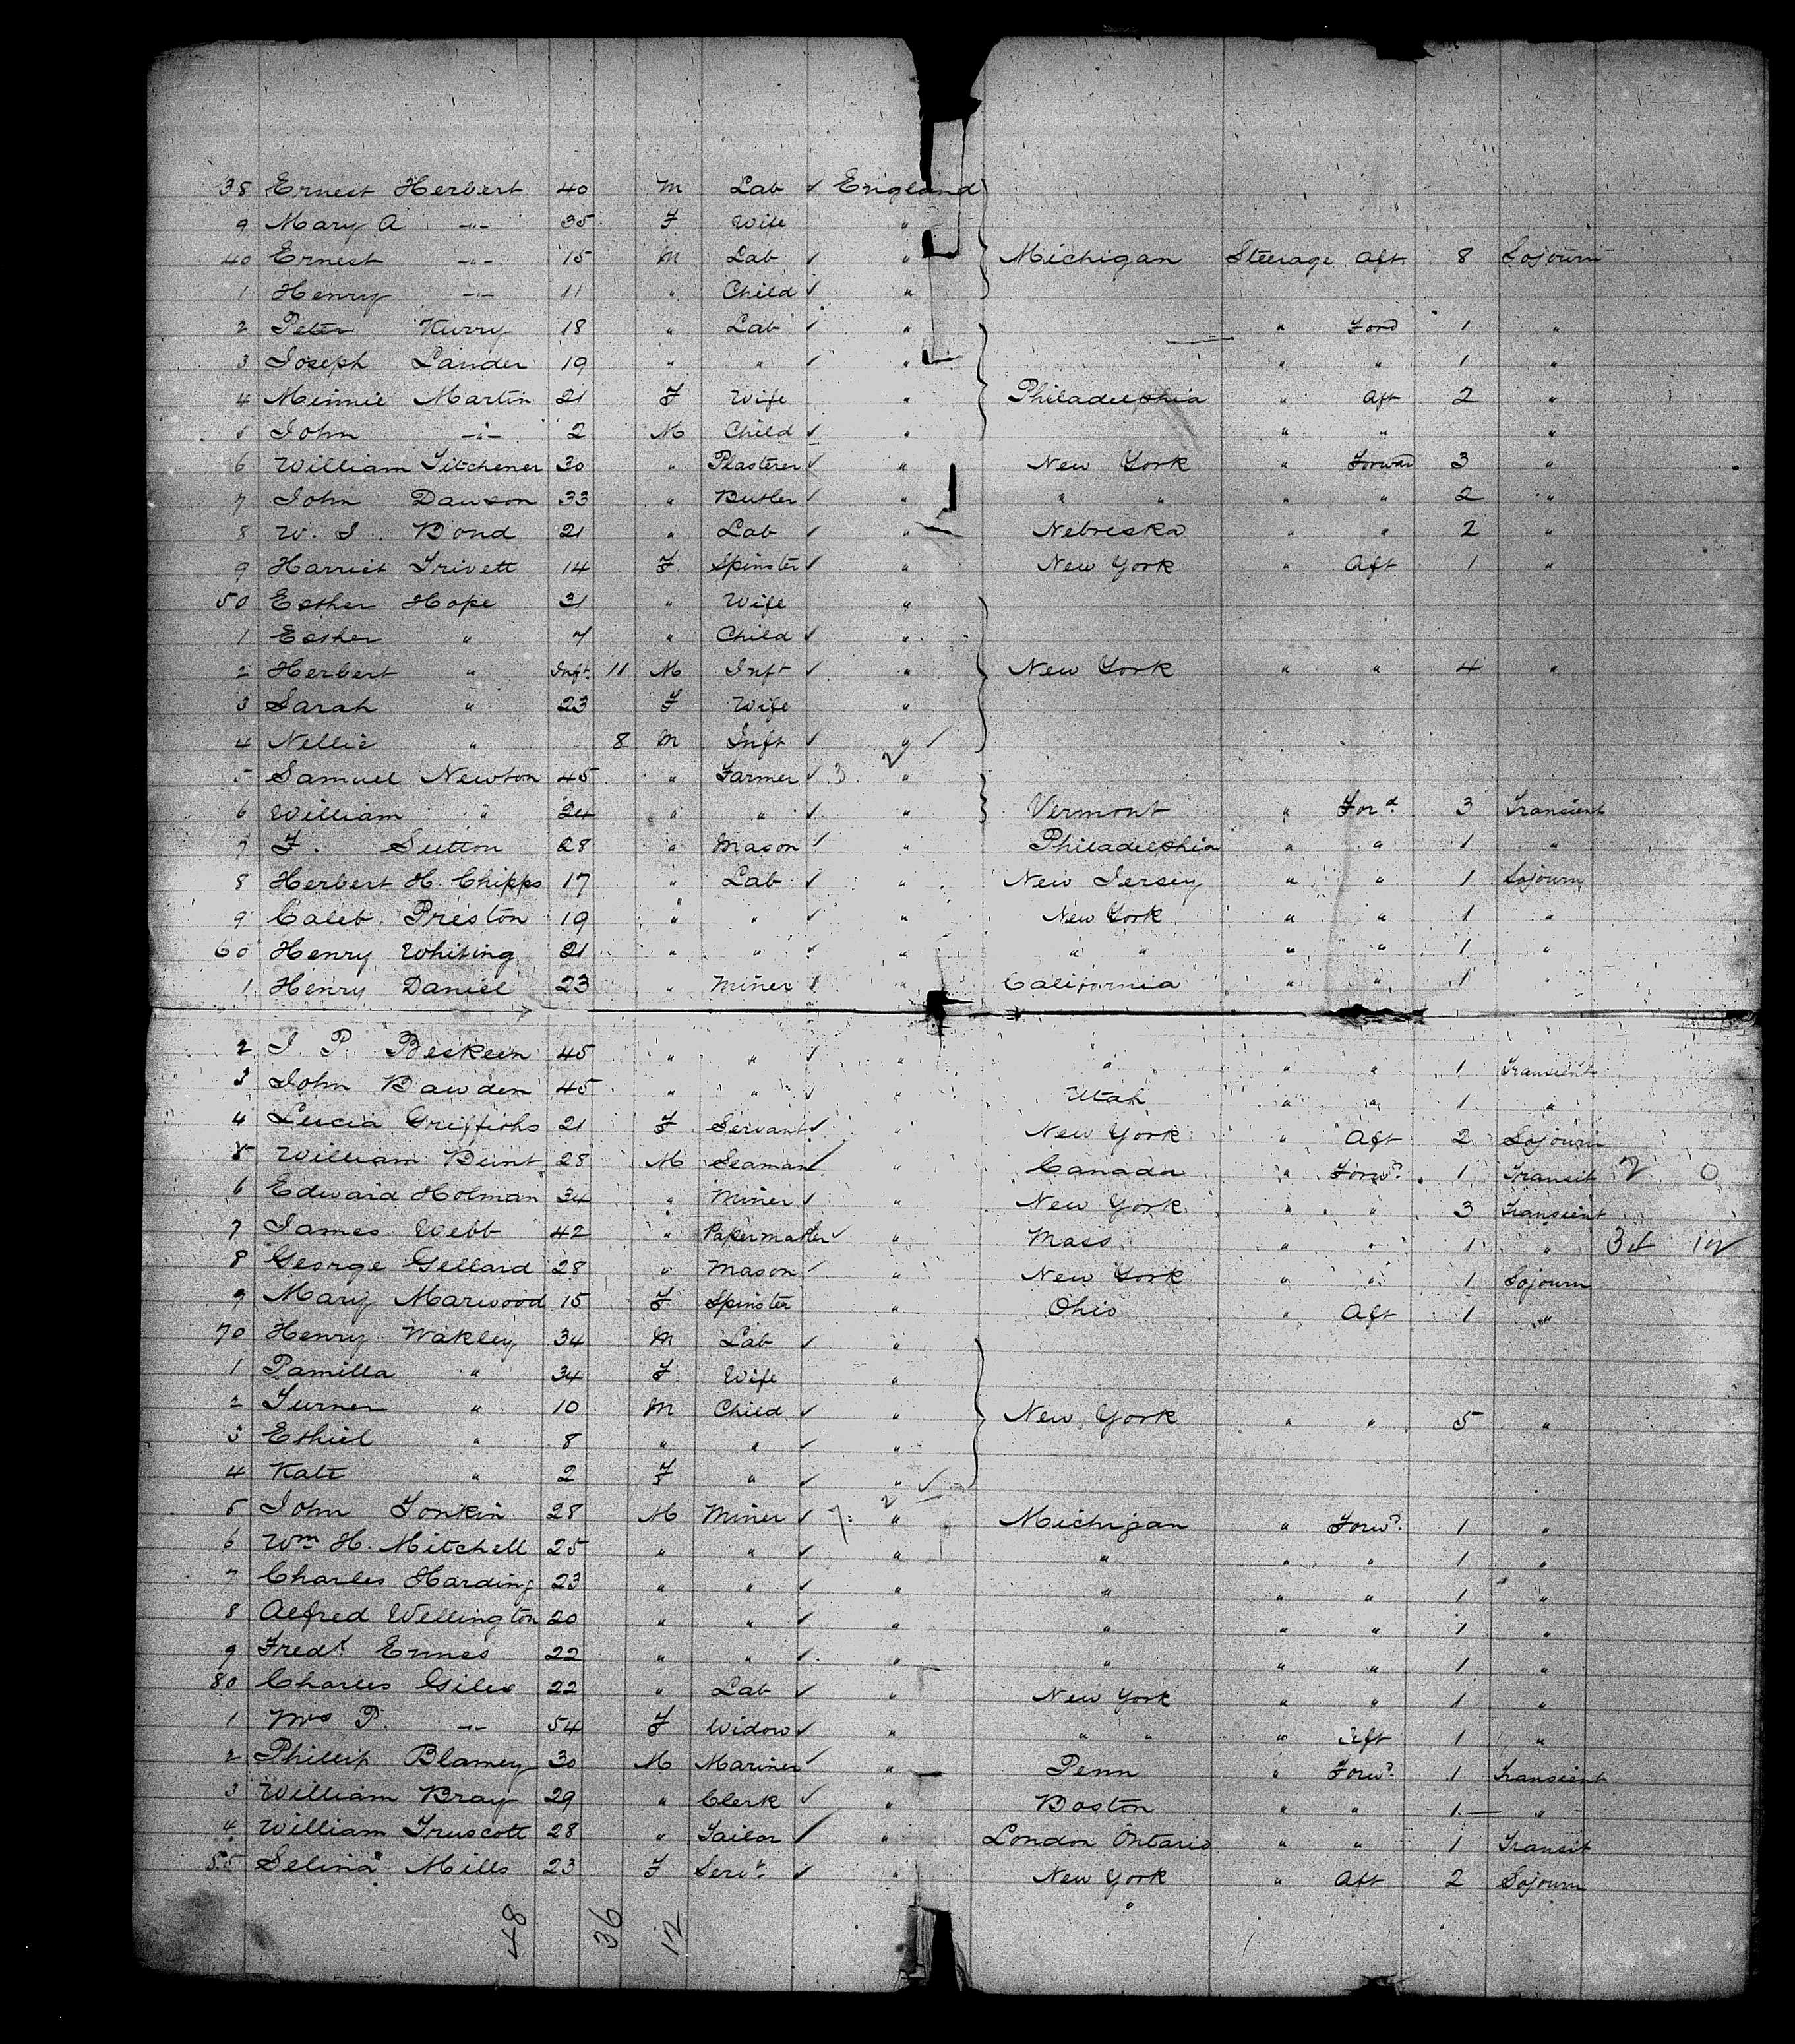 38 Ernest Herbert 40 M Lab ✓ England
9 Mary A -"- 35 F Wife "
40 Ernest -"- 15 M Lab ✓ " Michigan Steerage Aft 8 Sojourn
1 Henry -"- 11 " Child ✓ "
2 Peter 18 " Lab ✓ " " Ford 1 "
3 Joseph Lander 19 " " ✓ " " " 1 "
4 Minnie Martin 21 F Wife " Philadelphia " Aft 2 "
5 John -"- 2 M Child ✓ " " " "
6 William Titchener 30 " Plasterer ✓ " New York " Forwd 3 "
7 John Dawson 33 " Butler ✓ " " " " " 2 "
8 W. J. Bond 21 " Lab ✓ " Nebreska " " 2 "
9 Harriet Trivett 14 F Spinster ✓ " New York " Aft 1 "
50 Esther Hope 31 " Wife "
1 Esther " 7 " Child ✓ "
2 Herbert " Inft. 11 M Inft ✓ " New York " " 4 "
3 Sarah " 23 F Wife "
4 Nellie " 8 M Inft ✓ " ✓
5 Samuel Newton 45 " Farmer ✓ 3 2 "
6 William " 24 " " ✓ " Vermont " Ford 3 Transient
7 F. Sutton 28 " Mason ✓ " Philadelphia " " 1 "
8 Herbert H. Chipps 17 " Lab ✓ " New Jersey " " 1 Sojourn
9 Caleb Preston 19 " " ✓ " New York " " 1 "
60 Henry Whiting 21 " " ✓ " " " " " 1 "
1 Henry Daniel 23 " Miner ✓ " California " " 1 "
2 J. P. Beskeen 45 " " ✓ " " " " 1 Transient
3 John Bawden 45 " " ✓ " Utah " " 1 "
4 Lucia Griffiths 21 F Servant ✓ " New York " Aft 2 Sojourn
5 William Bunt 28 M Seaman ✓ " Canada " Forwd. 1 Transit 2 0
6 Edward Holman 34 " Miner ✓ " New York " " 3 Transient
7 James Webb 42 " Papermaker ✓ " Mass " " 1 " 34 12
8 George Gellard 28 " Mason ✓ " New York " " 1 Sojourn
9 Mary Marwood 15 F Spinster " Ohio " Aft 1 "
70 Henry Wakley 34 M Lab ✓ "
1 Pamilla " 34 F Wife "
2 Turner " 10 M Child ✓ " New York " " 5 "
3 Ethiel " 8 " " ✓ "
4 Kate " 2 F " ✓ " ✓
5 John Tonkin 28 M Miner ✓ 7 2 " Michigan " Forwd. 1 "
6 Wm H. Mitchell 25 " " ✓ " " " " 1 "
7 Charles Harding 23 " " ✓ " " " " 1 "
8 Alfred Wellington 20 " " ✓ " " " " 1 "
9 Fredk. Ennes 22 " " ✓ " " " " 1 "
80 Charles Giles 22 " Lab ✓ " New York " " 1 "
1 Mrs P. -"- 54 F Widow ✓ " " " " Aft 1 "
2 Phillip Blamey 30 M Mariner ✓ " Penn " Forwd. 1 Transient
3 William Bray 29 " Clerk ✓ " Boston " " 1 "
4 William Truscott 28 " Tailor ✓ " London Ontario " " 1 Transit
85 Selina Mills 23 F Servt. ✓ " New York " Aft 2 Sojourn
48 36 12